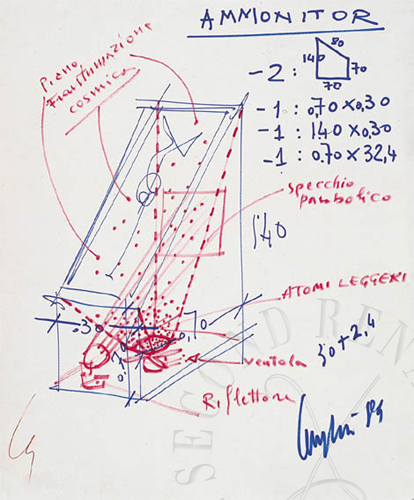 AMMONITOR
- 2 :
80
140
70
70
- 1 : 0,70 x 0,30
- 1 : 140 x 0,30
- 1 : 0.70 x 32,4
Pieno
Frantumazione
cosmica
specchio
parabolico
140
ATOMI LEGGERI
.30
0,70
ventola
30 + 2,4
Riflettore
SECOND REN